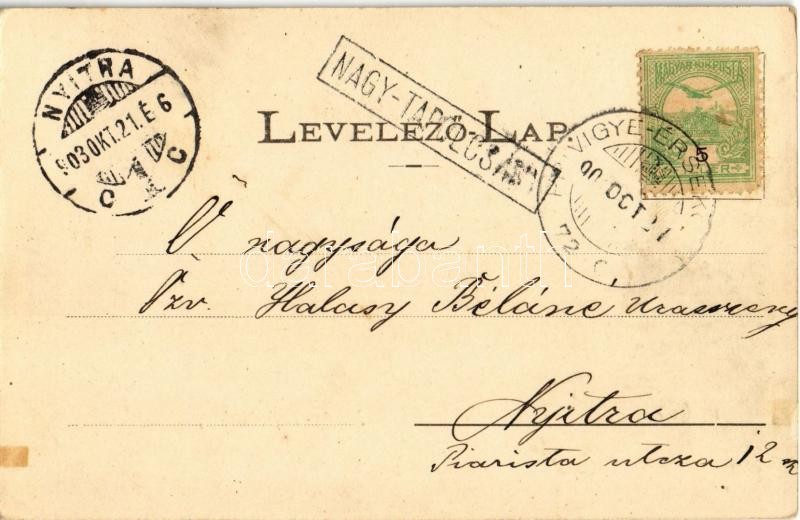 NYITRA
903 OKT. 21. É 6
C 1 C
NAGY-TAPOLCSÁNY
MAGYAR KIR. POSTA
5
LEVELEZŐ LAP
VIGYE-ÉRSEK
OCT 21
72
Ő nagysága
Özv. Halasy Béláné Uraszony
darabanth
Nyitra
Piarista utcza 12